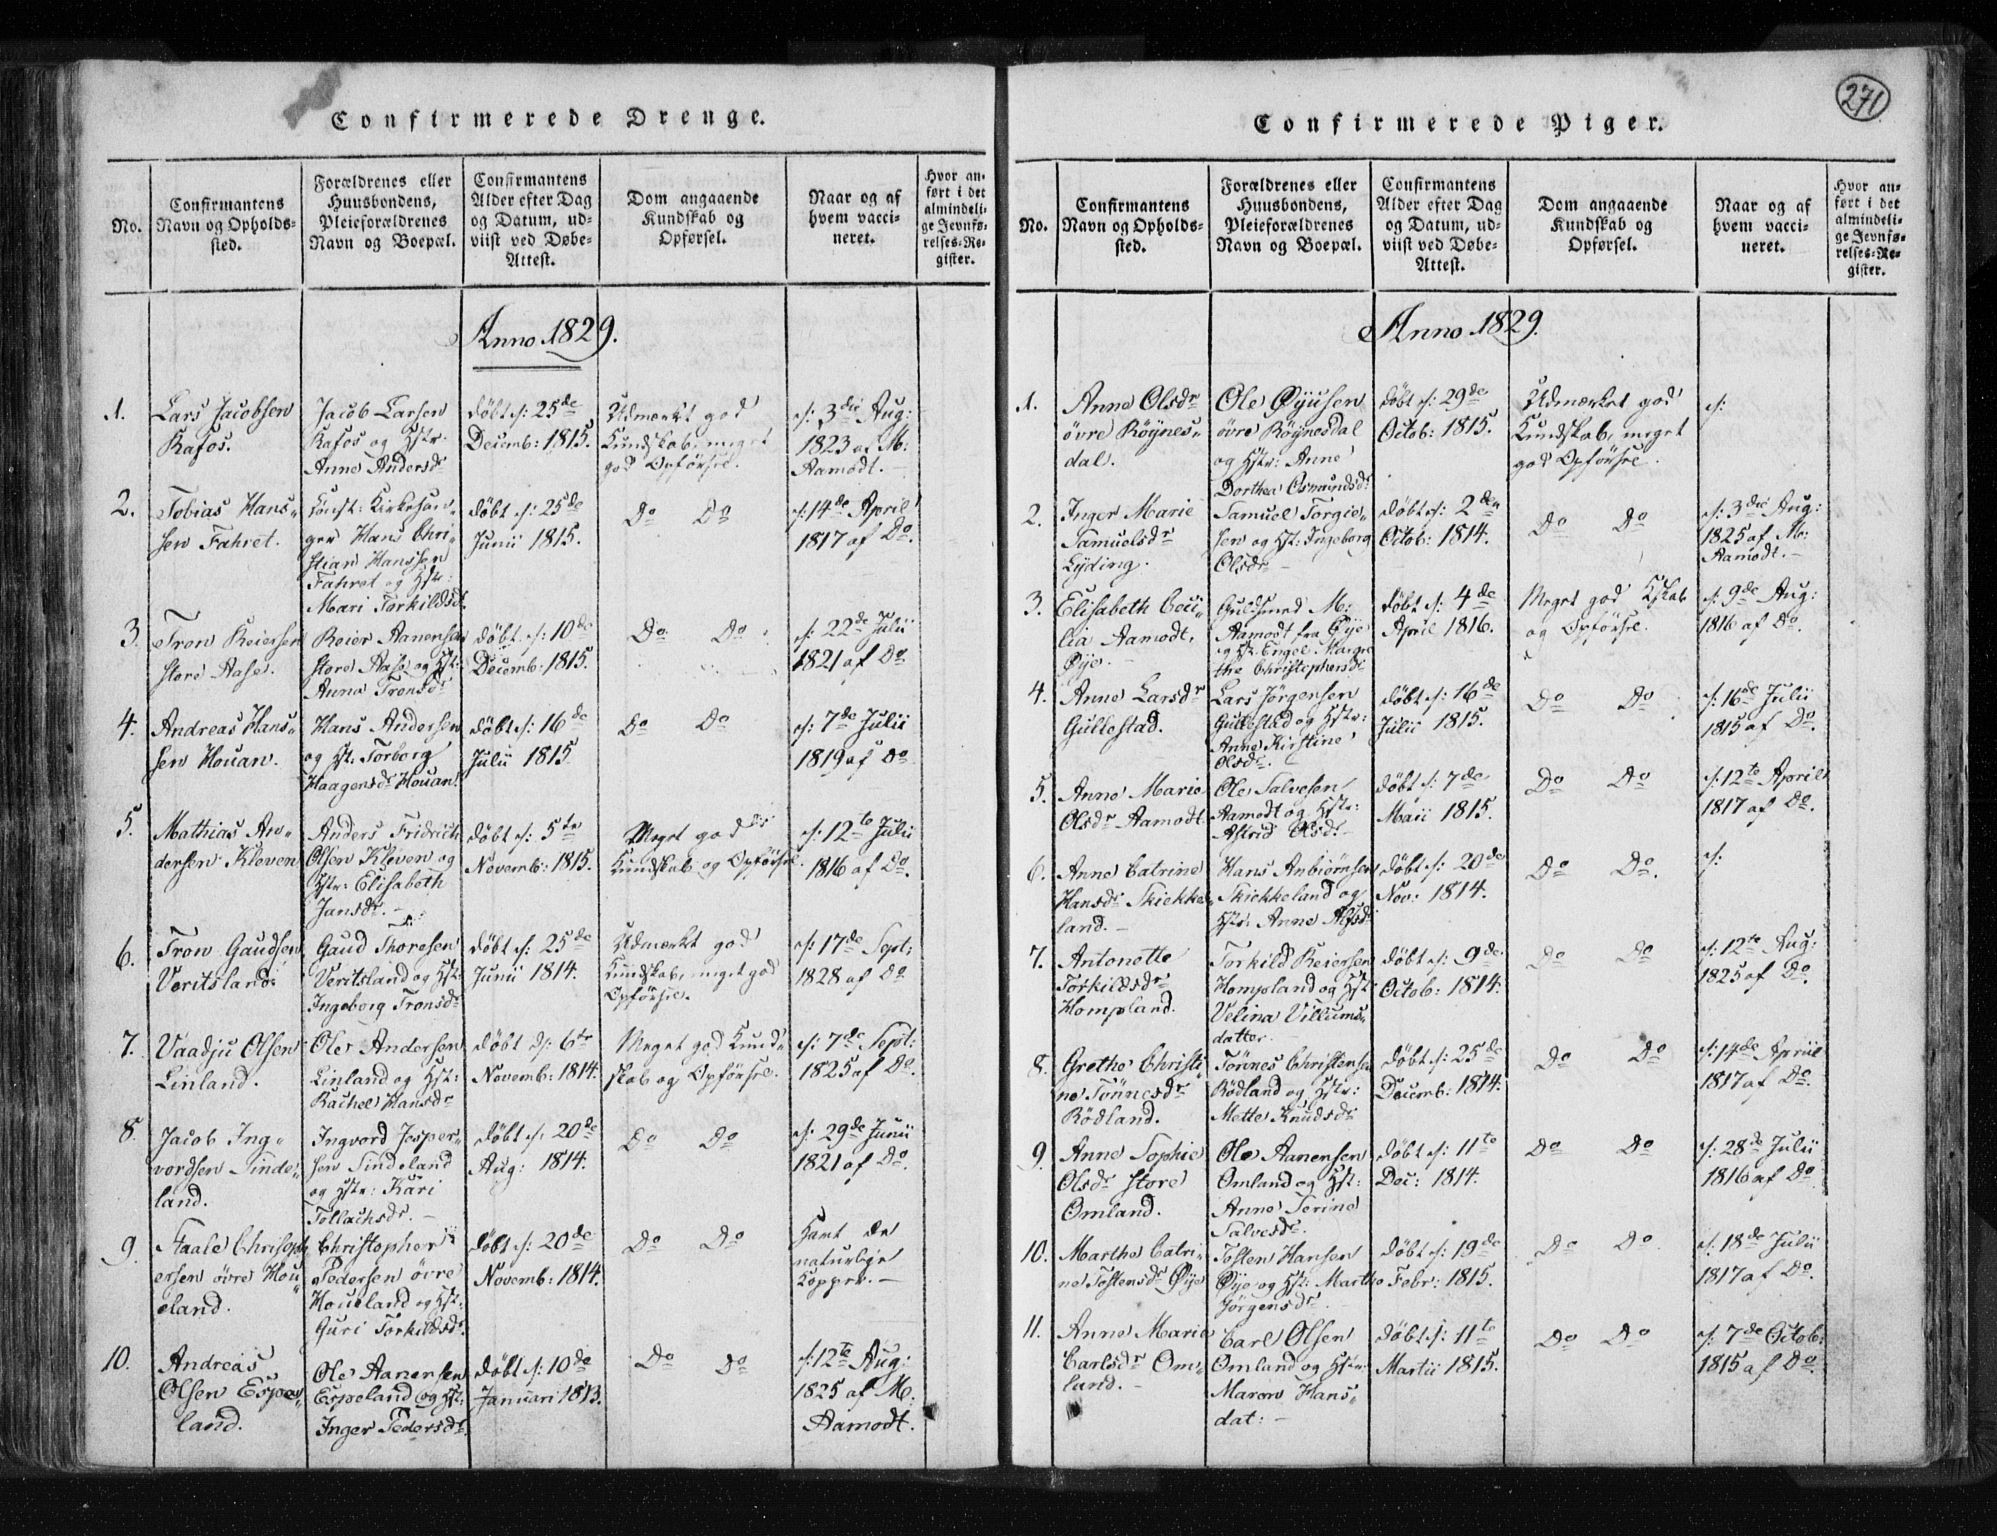 271
Confirmerede Drenge.
No.
Confirmantens
Navn og Opholds-
sted.
Forældrenes eller
Huusbondens,
Pleieforældrenes
Navn og Boepæl.
Confirmantens
Alder efter Dag
og Datum, ud-
viist ved Døbe-
Attest.
Dom angaaende
Kundskab og
Opførsel.
Naar og af
hvem vacci-
neret.
Hvor an-
ført i det
almindeli-
ge Jevnfø-
relses-Re-
gister.
Anno 1829.
1.
Lars Jacobsen
Rafos.
Jacob Larsen
Rafos og Hstr:
Anne Andersdr
døbt d: 25de
Decemb: 1815.
Udmærkt god
Kundskab, meget
god Opførsel.
d: 3die Aug:
1823 af M:
Aamodt.
2.
Tobias Hans„
sen Fahret.
Const: Kirkesan„
ger Hans Chri„
stian Hanssen
Fahret og Hstr:
Mari Torkildsdr
døbt d: 25de
Junii 1815.
Do Do
d: 14de April
1817 af Do.
3.
Tron Reiersen
store Aase.
Reier Aanensen
store Aase og Hst:
Anna Tronsdr
døbt d: 10de
Decemb: 1815.
Do Do
d: 22de Julii
1821 af Do
4.
Andreas Hans„
sen Houan.
Hans Andersen
og Hst: Torborg
Haagensdr Houan.
døbt d: 16de
Julii 1815.
Do Do
d: 7de Julii
1819 af Do
5.
Mathias An„
dersen Kleven
Anders Fridrich
Olsen Kleven og
Hstr: Elisabeth
Jansdr.
døbt d: 5te
Novemb: 1815.
Meget god
Kundskab og Opførsel.
d: 12te Julii
1816 af Do.
6.
Tron Gaudsen
Veritsland.
Gaud Thoresen
Veritsland og Hst:
Ingeborg Tronsdr
døbt d: 25de
Junii 1814.
Udmærkt god
Kundskab, meget god
Opførsel.
d: 17de Sept:
1828 af Do
7.
Vaadju Olsen
Linland.
Ole Andersen
Linland og Hst:
Rachel Hansdr
døbt d: 6te
Novemb: 1814.
Meget god Kund„
skab og Opførsel.
d: 7de Sept:
1825 af Do.
8.
Jacob Ing„
vordsen Sinde„
land.
Ingvord Jesper„
sen Sindeland
og Hstr: Kari
Tollachsdr.
døbt d: 20de
Aug: 1814.
Do Do
d: 29de Junii
1821 af Do.
9.
Staale Christoph
ersen øvre Hou„
eland.
Christopher
Pedersen øvre
Houeland og Hst:
Guri Torkildsdr.
døbt d: 20de
Novemb: 1814.
Do Do
Havt de
naturlige
Kopper.
10.
Andreas
Olsen Espe„
land.
Ole Aanensen
Espeland og Hst:
Inger Pedersdr.
døbt d: 10de
Januari 1813.
Do Do
d: 12te Aug:
1825 af M:
Aamodt.
Confirmerede Piger.
No.
Confirmantens
Navn og Opholds-
sted.
Forældrenes eller
Huusbondens,
Pleieforældrenes
Navn og Boepæl.
Confirmantens
Alder efter Dag
og Datum, ud-
viist ved Døbe-
Attest.
Dom angaaende
Kundskab og
Opførsel.
Naar og af
hvem vacci-
neret.
Hvor an-
ført i det
almindeli-
ge Jevnfø-
relses-Re-
gister.
Anno 1829.
1.
Anne Olsdr
øvre Röynes„
dal.
Ole Øyusen
øvre Röynesdal
og Hstr: Anne
Dorthea Osmundsdr
døbt d: 29de
Octob: 1815.
Udmærket god
Kundskab, meget
god Opførsel.
d:
2.
Inger Marie
Samuelsdr
Lyding.
Samuel Torgie„
sen og Hst: Ingeborg
Olsdr
døbt d: 2den
Octob: 1814.
Do Do
d: 3die Aug:
1825 af Mo:
Aamodt.
3.
Elisabeth Ceci„
lia Aamodt,
Øye.
Guldsmed M:
Aamodt fra Øye
og Hst. Engel Margre
the Christophersdr
døbt d: 4de
April 1816.
Meget god Kskab
og Opførsel.
d: 9de Aug:
1816 af Do.
4.
Anne Larsdr
Gullestad.
Lars Jørgensen
Gullestad og Hstr:
Anne Kirstine
Olsdr.
døbt d: 16de
Julii 1815.
Do Do
d: 16de Julii
1815 af Do.
5.
Anne Marie
Olsdr Aamodt
Ole Salvesen
Aamodt og Hstr:
Astrid Olsdr
døbt d: 7de
Maii 1815.
Do Do
d: 12te April
1817 af Do.
6.
Anne Catrine
Hansdr Skiekke„
land.
Hans Anbiørnsen
Skiekkeland og
Hstr: Anne Alfsdr
døbt d: 20de
Nov: 1814.
Do Do.
d:
7.
Antonette
Torkildsdr
Hompland.
Torkild Reiersen
Hompland og Hst:
Velina Villums„
datter
døbt d: 9de
Octob: 1814.
Do Do
d: 12te Aug:
1825 af Do.
8.
Grethe Christi„
ne Tønnesdr
Rödland.
Tønnes Christensen
Rödland og Hstr:
Mette Knudsdr
døbt d: 25de
Decemb: 1814.
Do Do
d: 14de Apriil
1817 af Do.
9.
Anne Sophie
Olsdr store
Omland.
Ole Aanensen
Omland og Hst:
Anne Serine
Salvesdr.
døbt d: 11te
Dec: 1814.
Do Do
d: 28de Julii
1816 af Do
10.
Marthe Catri„
ne Tostensdr Øye
Tosten Hansen
Øye og Hst: Marthe
Jørgensdr
døbt d: 19de
Febr: 1815.
Do Do
d: 18de Julii
1817 af Do.
11.
Anne Marie
Carlsdr Om„
land.
Carl Olsen
Omland og Hstr:
Maren Hans„
dat:
døbt d: 11te
Martii 1815.
Do Do
d: 7de Octob:
1815 af Do.